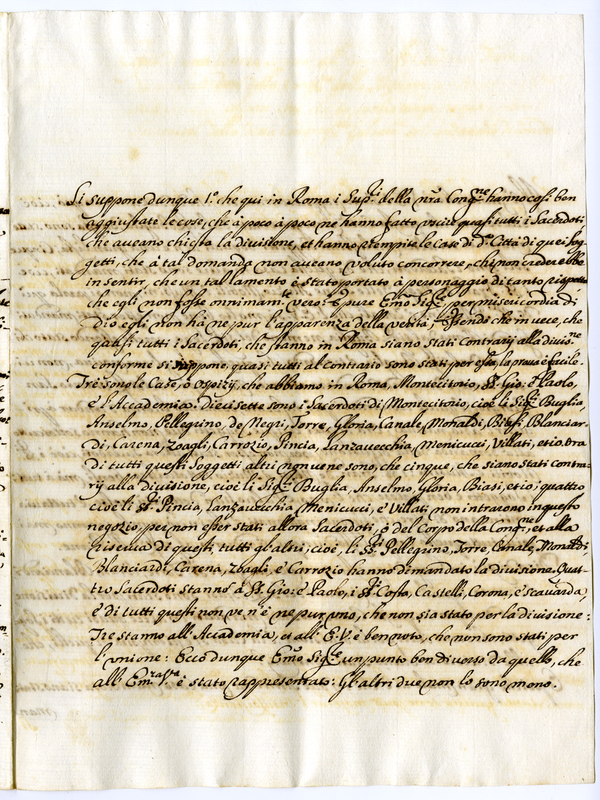 Si suppone dunque 1.º che qui in Roma i Sup.ri della nr̃a Cong.ne hanno così ben
aggiustate le cose, che à poco à poco ne hanno fatto uscir quasi tutti i Sacerdoti
che aveano chiesta la divisione, et hanno riempite le Case di d.ª Città di quei sog
getti, che à tal domanda non aveano voluto concorrere, chi non crederebbe
in sentir, che un tal lamento è stato portato à personaggio di tanto rispetto
che egli non fosse onninam.te vero? È pure Em̃o Sig.re, per misericordia di
Dio egli non hà ne pur l'apparenza della verità, essendo che in vece, che
quasi tutti i Sacerdoti, che stanno in Roma siano stati contrarij alla divis.ne
conforme si suppone, quasi tutti al contrario sono stati per essa, la prova è facile.
Trè sono le Case, ò ospizij, che abbiamo in Roma, Montecitorio, SS. Gio: è Paolo,
è l'Accademia. diecisette sono i Sacerdoti di Montecitorio, cioè li Sig.ri Buglia,
Anselmo, Pellegrino, de Negri, Torre, Gloria, Canale, Monaldi, Biasi, Blanciar-
di, Carena, Zoagli, Carrozio, Pincia, Lanzavecchia, Menicucci, Villati, et io. Ora
di tutti questi Soggetti altri non ve ne sono, che cinque, che siano stati contra-
rij alla divisione, cioè li Sig.ri Buglia, Anselmo, Gloria, Biasi, et io; quattro
cioè li S.ri Pincia, Lanzavecchia, Menicucci, è Villati non intrarono in questo
negozio, per non esser stati allora Sacerdoti, ò del Corpo della Cong.ne, et alla
riserva di questi, tutti gl'altri; cioè, li SS.ri Pellegrino, Torre, Canale, Monaldi
Blanciardi, Carena, Zoagli, è Carrozio hanno dimandato la divisione. Quat-
tro Sacerdoti stanno à SS. Gio: è Paolo, i S.ri Costo, Castelli, Corona, è Scavarda,
è di tutti questi non ve n'è ne pur uno, che non sia stato per la divisione:
Tre stanno all'Accademia, et all'E. V. è ben noto, che non sono stati per
l'unione: Ecco dunque Em̃o Sig.re un punto ben diverso da quello, che
all'Em.za V.ra è stato rappresentato: Gl'altri due non lo sono meno.